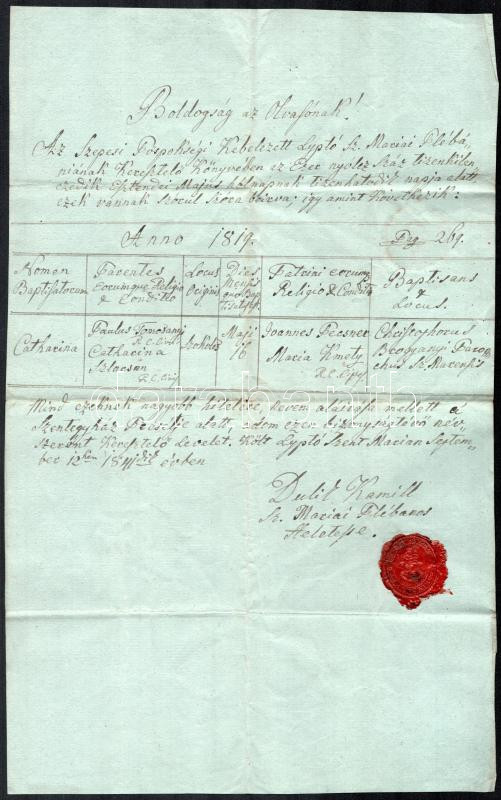 Boldogság az Olvasónak!
Az Szepesi Püspökségi Kebelezett Lyptó Sz. Mariai Plébá-
niának Keresztelő Könyvében ez Ezer nyoltz Száz tizenkilen-
czedik Esztendei Május hólnapnak tizenhatodik napja alatt
ezek vannak Szórúl Szóra beirva; igy amint következik:
Anno 1819. Pag 269.
Nomen Baptisatorum
Parentes eorumque Religio & Conditio
Locus Originis
Dies Mensis
Patrini eorumq Religio & Conditio
Baptisans & Locus.
Catharina
Paulus R.C. Catharina R.C.
Maji 16
Joannes Maria Kmety R.C.
Christophorus Parochus Sz. Mariensis
Mind ezeknek nagyobb hitelére, nevem aláirása mellett a
Szentegyház Pecsétje alatt, adom ezen bizonyitó név
szerént Keresztelő Levelet. Költ Lyptó Szent Marian Septem-
ber 12kén 1841dik évben
Dulik Kamill
Sz. Mariai Plébános
Helettese.